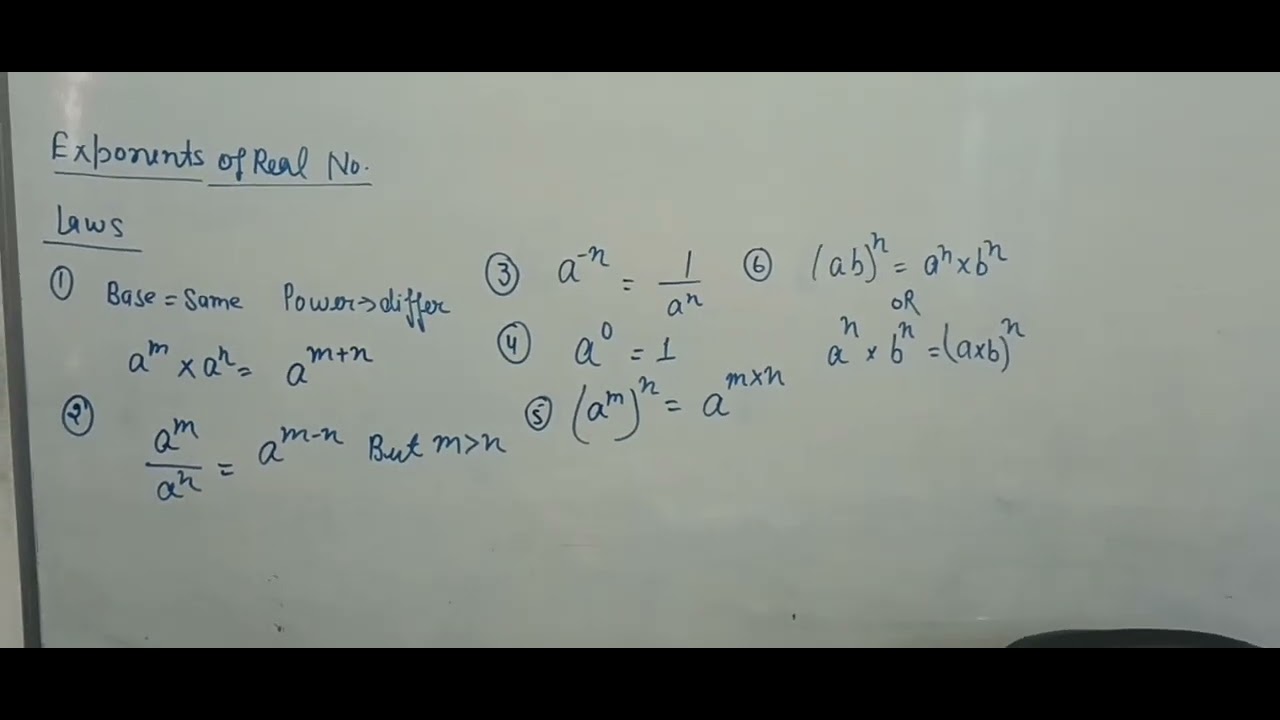 Exponents of Real No.
Laws
① Base = Same Power → differ
a^m × a^n = a^{m+n}
② a^m / a^n = a^{m-n} But m > n
③ a^{-n} = 1 / a^n
④ a^0 = 1
⑤ (a^m)^n = a^{m×n}
⑥ (ab)^n = a^n × b^n
OR
a^n × b^n = (a×b)^n